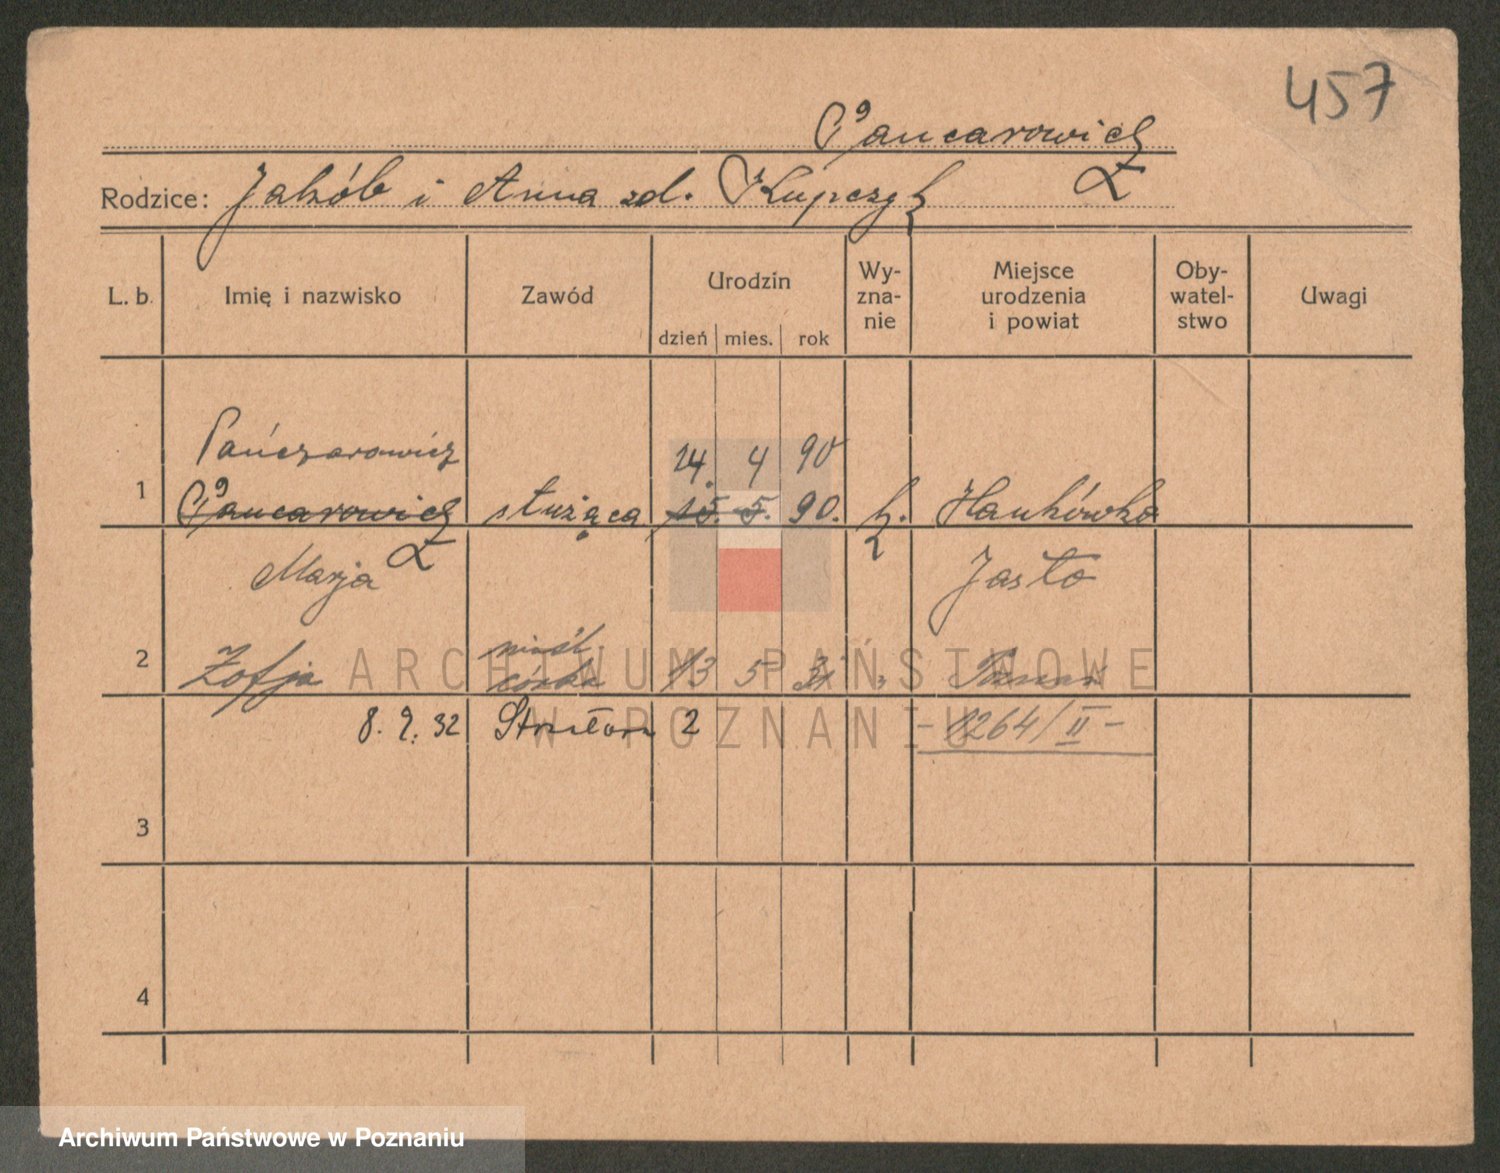 457
Pancarowicz
Rodzice: Jakób i Anna zd. Kupczyk
L. b. Imię i nazwisko Zawód Urodzin dzień mies. rok Wy-zna-nie Miejsce urodzenia i powiat Oby-watel-stwo Uwagi
Pańczarowicz 24. 4 90
1 Pancarowicz służąca 15. 5. 90. k. Hankówka
Marja Jasło
nieśl.
2 Zofja córka 13 5 31 " Poznań
8. 9. 32 2 - 1264/II -
3
4
ARCHIWUM PAŃSTWOWE
W POZNANIU
Archiwum Państwowe w Poznaniu